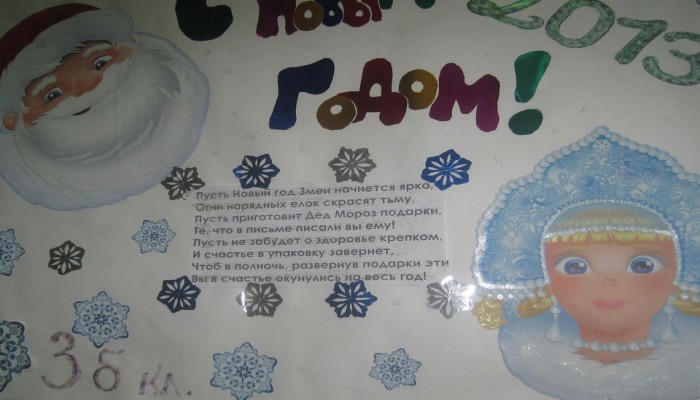 С Новым 2013
ГОДОМ!
Пусть Новый год Змеи начнется ярко,
Огни нарядных елок скрасят тьму,
Пусть приготовит Дед Мороз подарки,
Те, что в письме писали вы ему!
Пусть не забудет о здоровье крепком,
И счастье в упаковку завернет,
Чтоб в полночь, развернув подарки эти
Вы в счастье окунулись на весь год!
3 б кл.